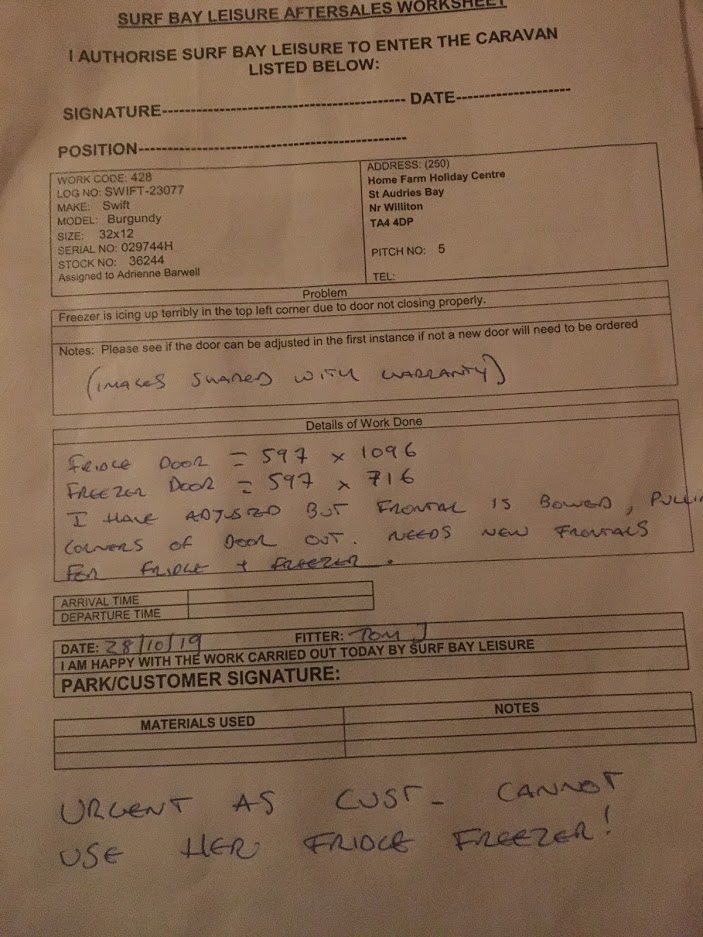 SURF BAY LEISURE AFTERSALES WORKSHEET
I AUTHORISE SURF BAY LEISURE TO ENTER THE CARAVAN
LISTED BELOW:
SIGNATURE---------------------------------------- DATE-------------------
POSITION--------------------------------------------
WORK CODE: 428
LOG NO: SWIFT-23077
MAKE: Swift
MODEL: Burgundy
SIZE: 32x12
SERIAL NO: 029744H
STOCK NO: 36244
Assigned to Adrienne Barwell
ADDRESS: (250)
Home Farm Holiday Centre
St Audries Bay
Nr Williton
TA4 4DP
PITCH NO: 5
TEL:
Problem
Freezer is icing up terribly in the top left corner due to door not closing properly.
Notes: Please see if the door can be adjusted in the first instance if not a new door will need to be ordered
(IMAGES SHARED WITH WARRANTY)
Details of Work Done
FRIDGE DOOR = 597 x 1096
FREEZER DOOR = 597 x 716
I HAVE ADJUSTED BUT FRONTAL IS BOWED, PULLIN
CORNERS OF DOOR OUT. NEEDS NEW FRONTALS
FOR FRIDGE + FREEZER.
ARRIVAL TIME
DEPARTURE TIME
DATE: 28/10/19 FITTER: TOM J
I AM HAPPY WITH THE WORK CARRIED OUT TODAY BY SURF BAY LEISURE
PARK/CUSTOMER SIGNATURE:
MATERIALS USED NOTES
URGENT AS CUST- CANNOT
USE HER FRIDGE FREEZER!